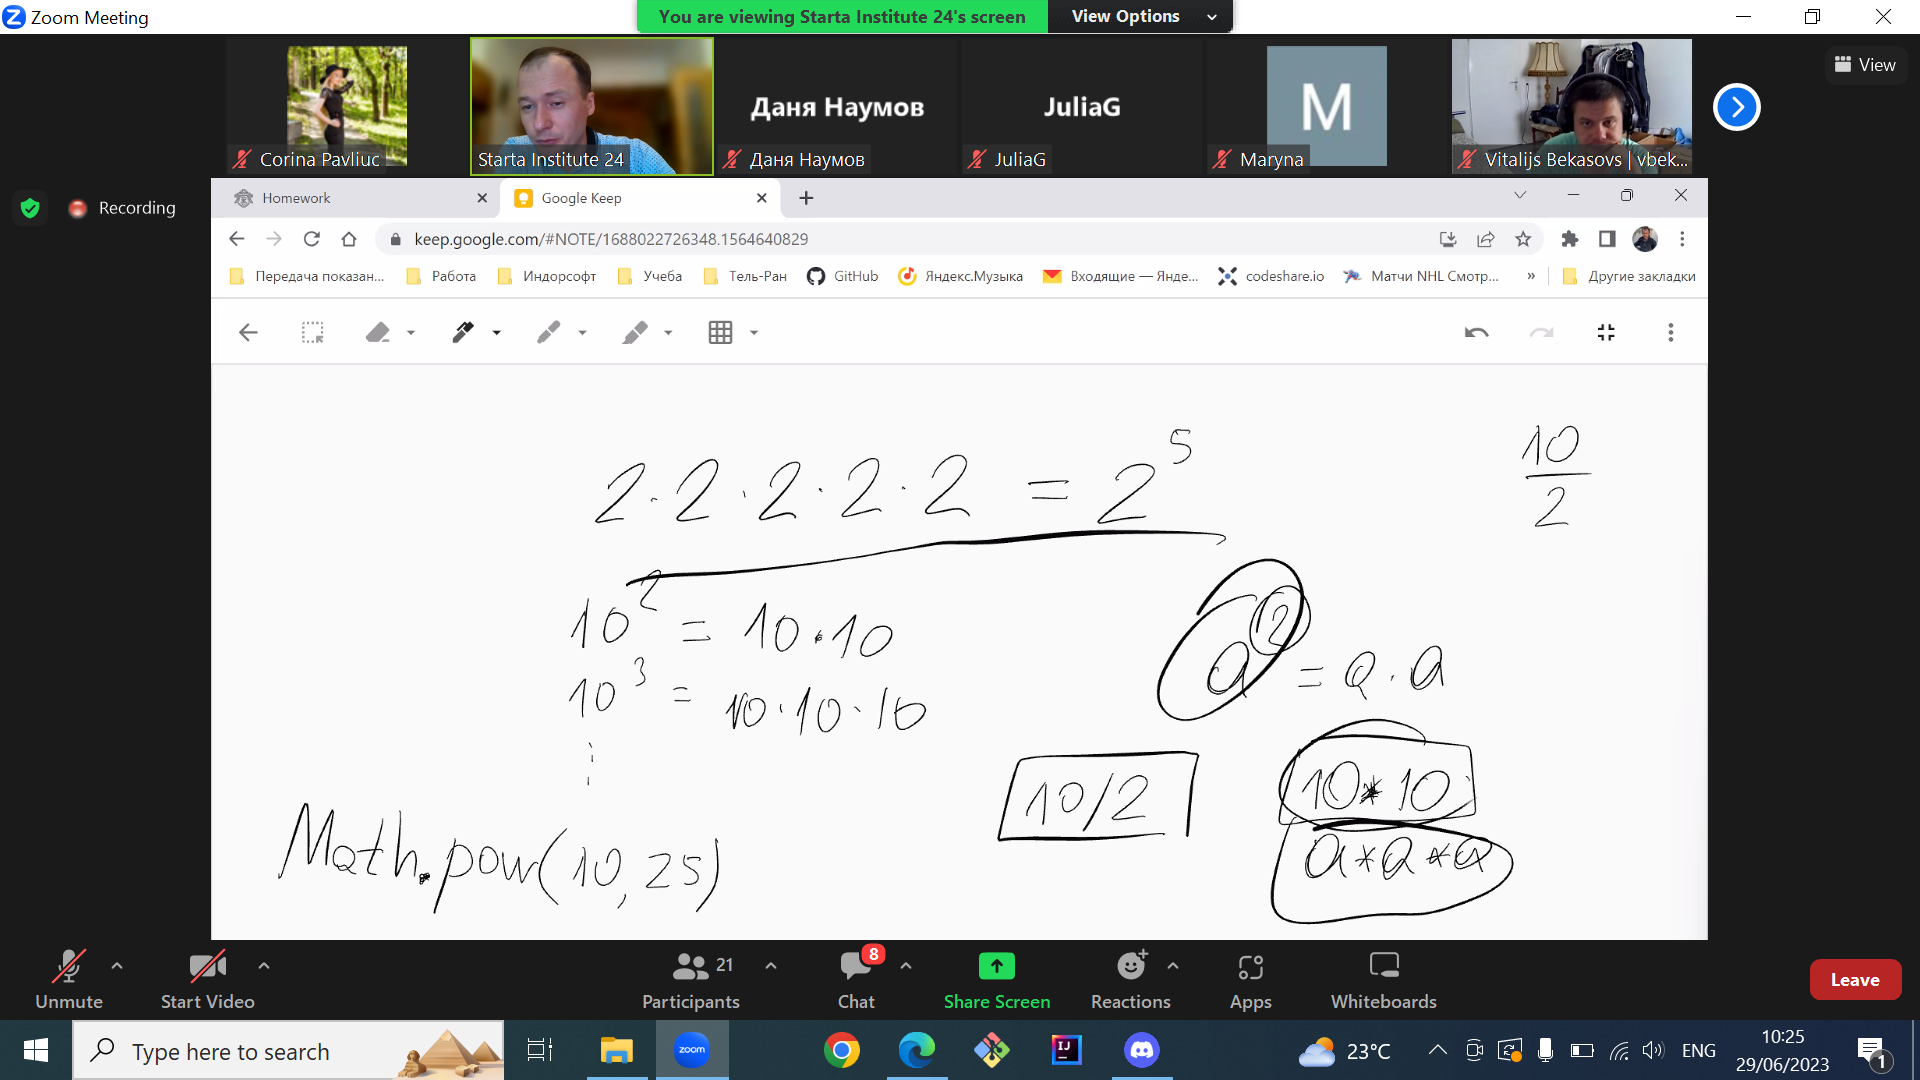 Zoom Meeting
You are viewing Starta Institute 24's screen
View Options
Даня Наумов
JuliaG
M
View
Corina Pavliuc
Starta Institute 24
Даня Наумов
JuliaG
Maryna
Vitalijs Bekasovs | vbek...
Recording
Homework
Google Keep
keep.google.com/#NOTE/1688022726348.1564640829
Передача показан...
Работа
Индорсофт
Учеба
Тель-Ран
GitHub
Яндекс.Музыка
Входящие — Янде...
codeshare.io
Матчи NHL Смотр...
»
Другие закладки
2·2·2·2·2 = 2⁵
10
2
10² = 10·10
a² = a·a
10³ = 10·10·10
10/2
10*10
a*a*a
Math.pow(10,25)
Unmute
Start Video
21
Participants
8
Chat
Share Screen
Reactions
Apps
Whiteboards
Leave
Type here to search
zoom
IJ
23°C
ENG
10:25
29/06/2023
1